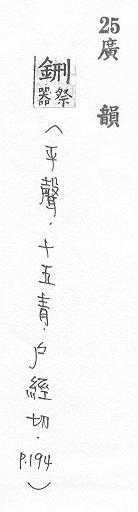 25廣韻
鉶祭器
(平聲．十五青．户經切．P.194)